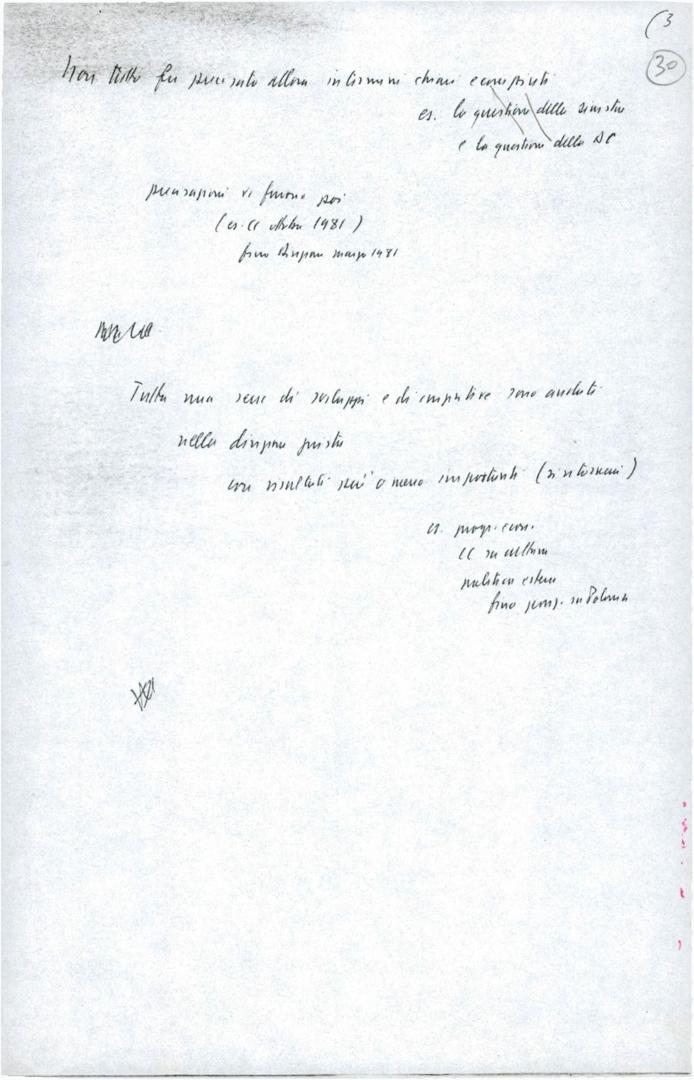 (3
30
Non tutto fu precisato allora in termini chiari e compiuti
es. la questione della sinistra
e la questione della DC
precisazioni vi furono poi
(es. CC ottobre 1981)
fino Direzione marzo 1981
Tutta una serie di sviluppi e di iniziative sono andati
nella direzione giusta
con risultati più o meno importanti
es. progr. econ.
CC su cultura
politica estera
fino posiz. su Polonia